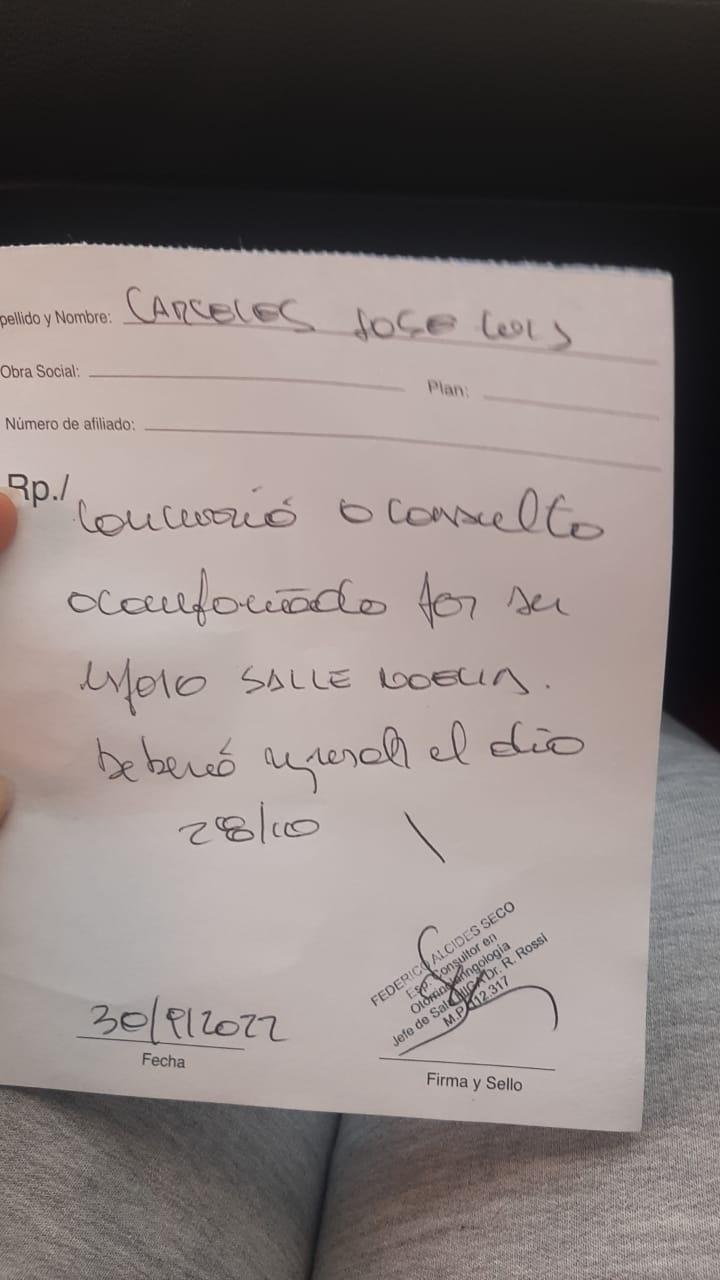 pellido y Nombre: CARCELES JOSE LUIS
Obra Social:
Plan:
Número de afiliado:
Rp./
Concurrió a consulta
acompañado por su
esposa SALLE NOELIA.
Deberá regresar el día
28/10
30/9/2022
Fecha
FEDERICO ALCIDES SECO
Esp. Consultor en
Otorrinolaringología
Jefe de Sala HIGA Dr. R. Rossi
M.P. 112.317
Firma y Sello